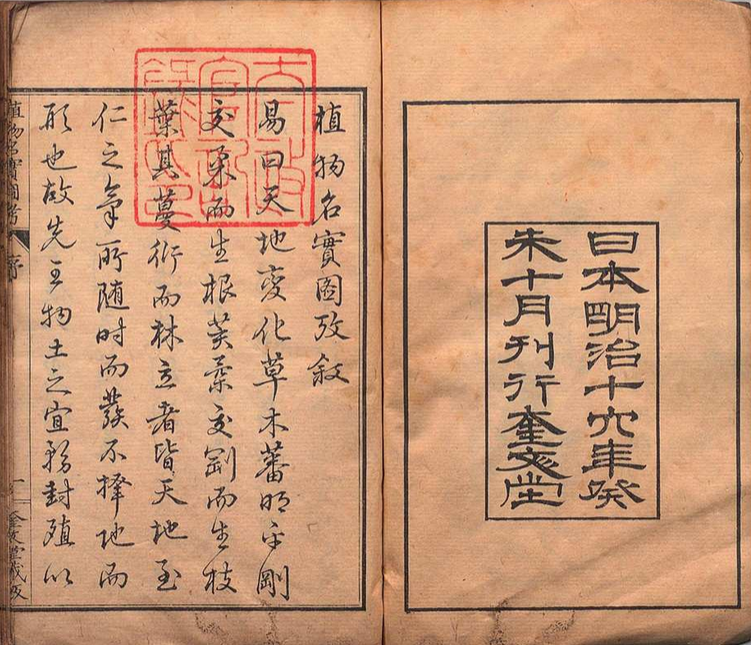 日本明治十六年癸
未十月刊行奎文堂
植物名實圖攷敘
易曰天地變化草木蕃明乎剛
交柔而生根荄柔交剛而生枝
葉其蔓衍而林立者皆天地至
仁之氣所隨時而發不擇地而
形也故先王物土之宜務封殖以
植物名實圖考 序 一 奎文堂藏版